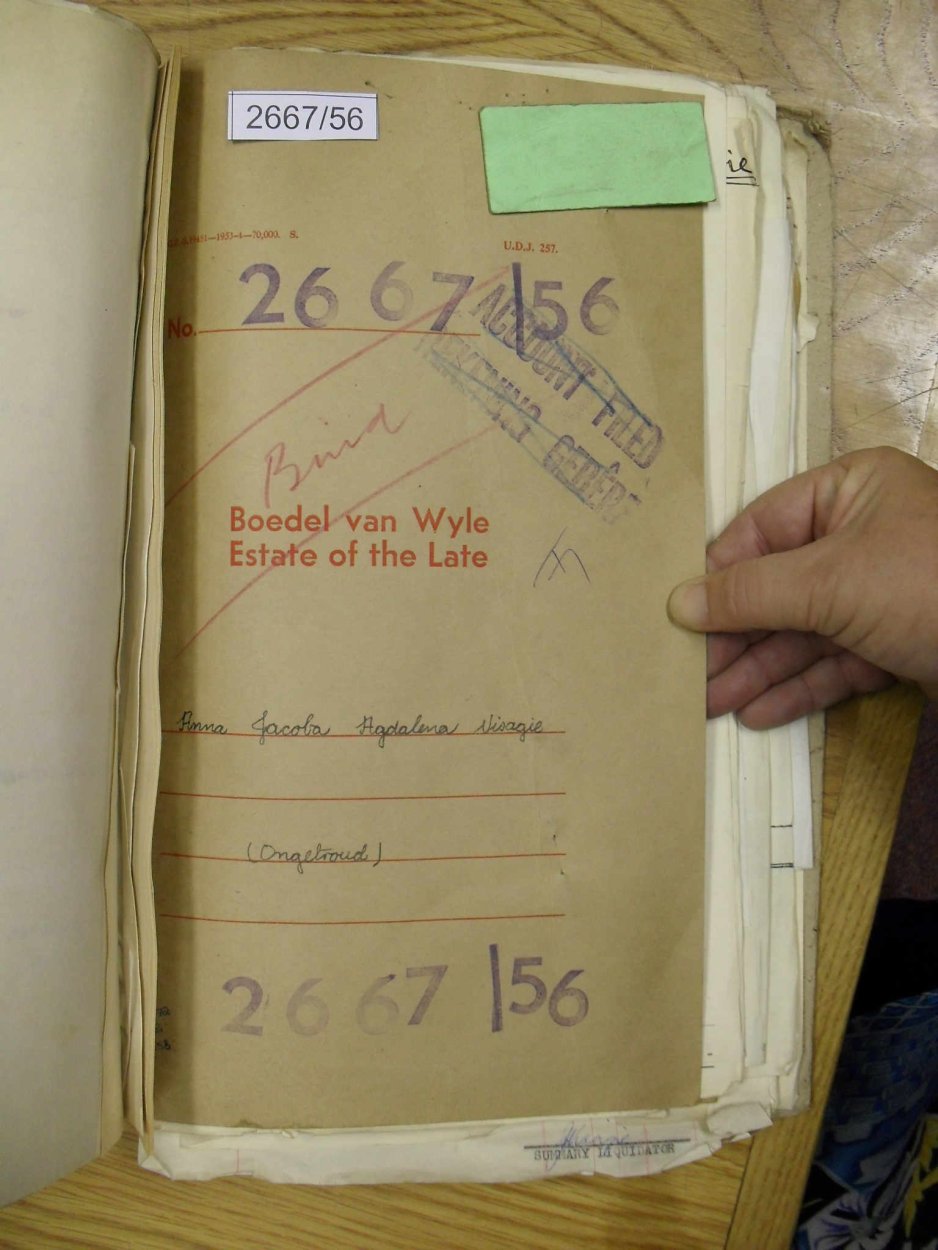 2667/56
ie
1953-4-70,000. S.
U.D.J. 257.
No. 2667/56
ACCOUNT FILED
REKENING GEBÊRE
Bind
Boedel van Wyle
Estate of the Late
Anna Jacoba Agdalena Visagie
(Ongetroud)
2667/56
SUMMARY LIQUIDATOR